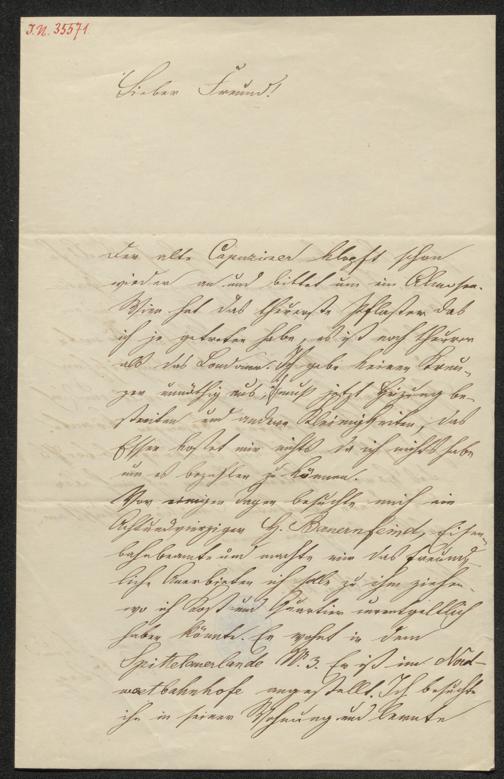 I.N. 35571
Lieber Freund!
Der alte Capuziner klopft schon
wieder an und bittet um ein Almosen.
Wien hat das theuerste Pflaster das
ich je getreten habe, es ist noch theurer
als das Londoner. Ich gebe keinen Kreu-
zer unnöthig aus, muß jetzt Heizung be-
streiten und andere Kleinigkeiten, das
Essen kostet mir nichts da ich nichts habe
um es bezahlen zu können.
Vor einigen Tagen besuchte mich ein
Achtundvierziger H. Bauernfeind, Eisen-
bahnbeamte und machte mir das freund-
liche Anerbieten ich solle zu ihm ziehen
wo ich Kost und Quartier unentgeltlich
haben könnte. Er wohnt in dem
Spittelauerlände No. 3. Er ist im Nord-
westbahnhofe angestellt. Ich besuchte
ihn in seiner Wohnung und lernte